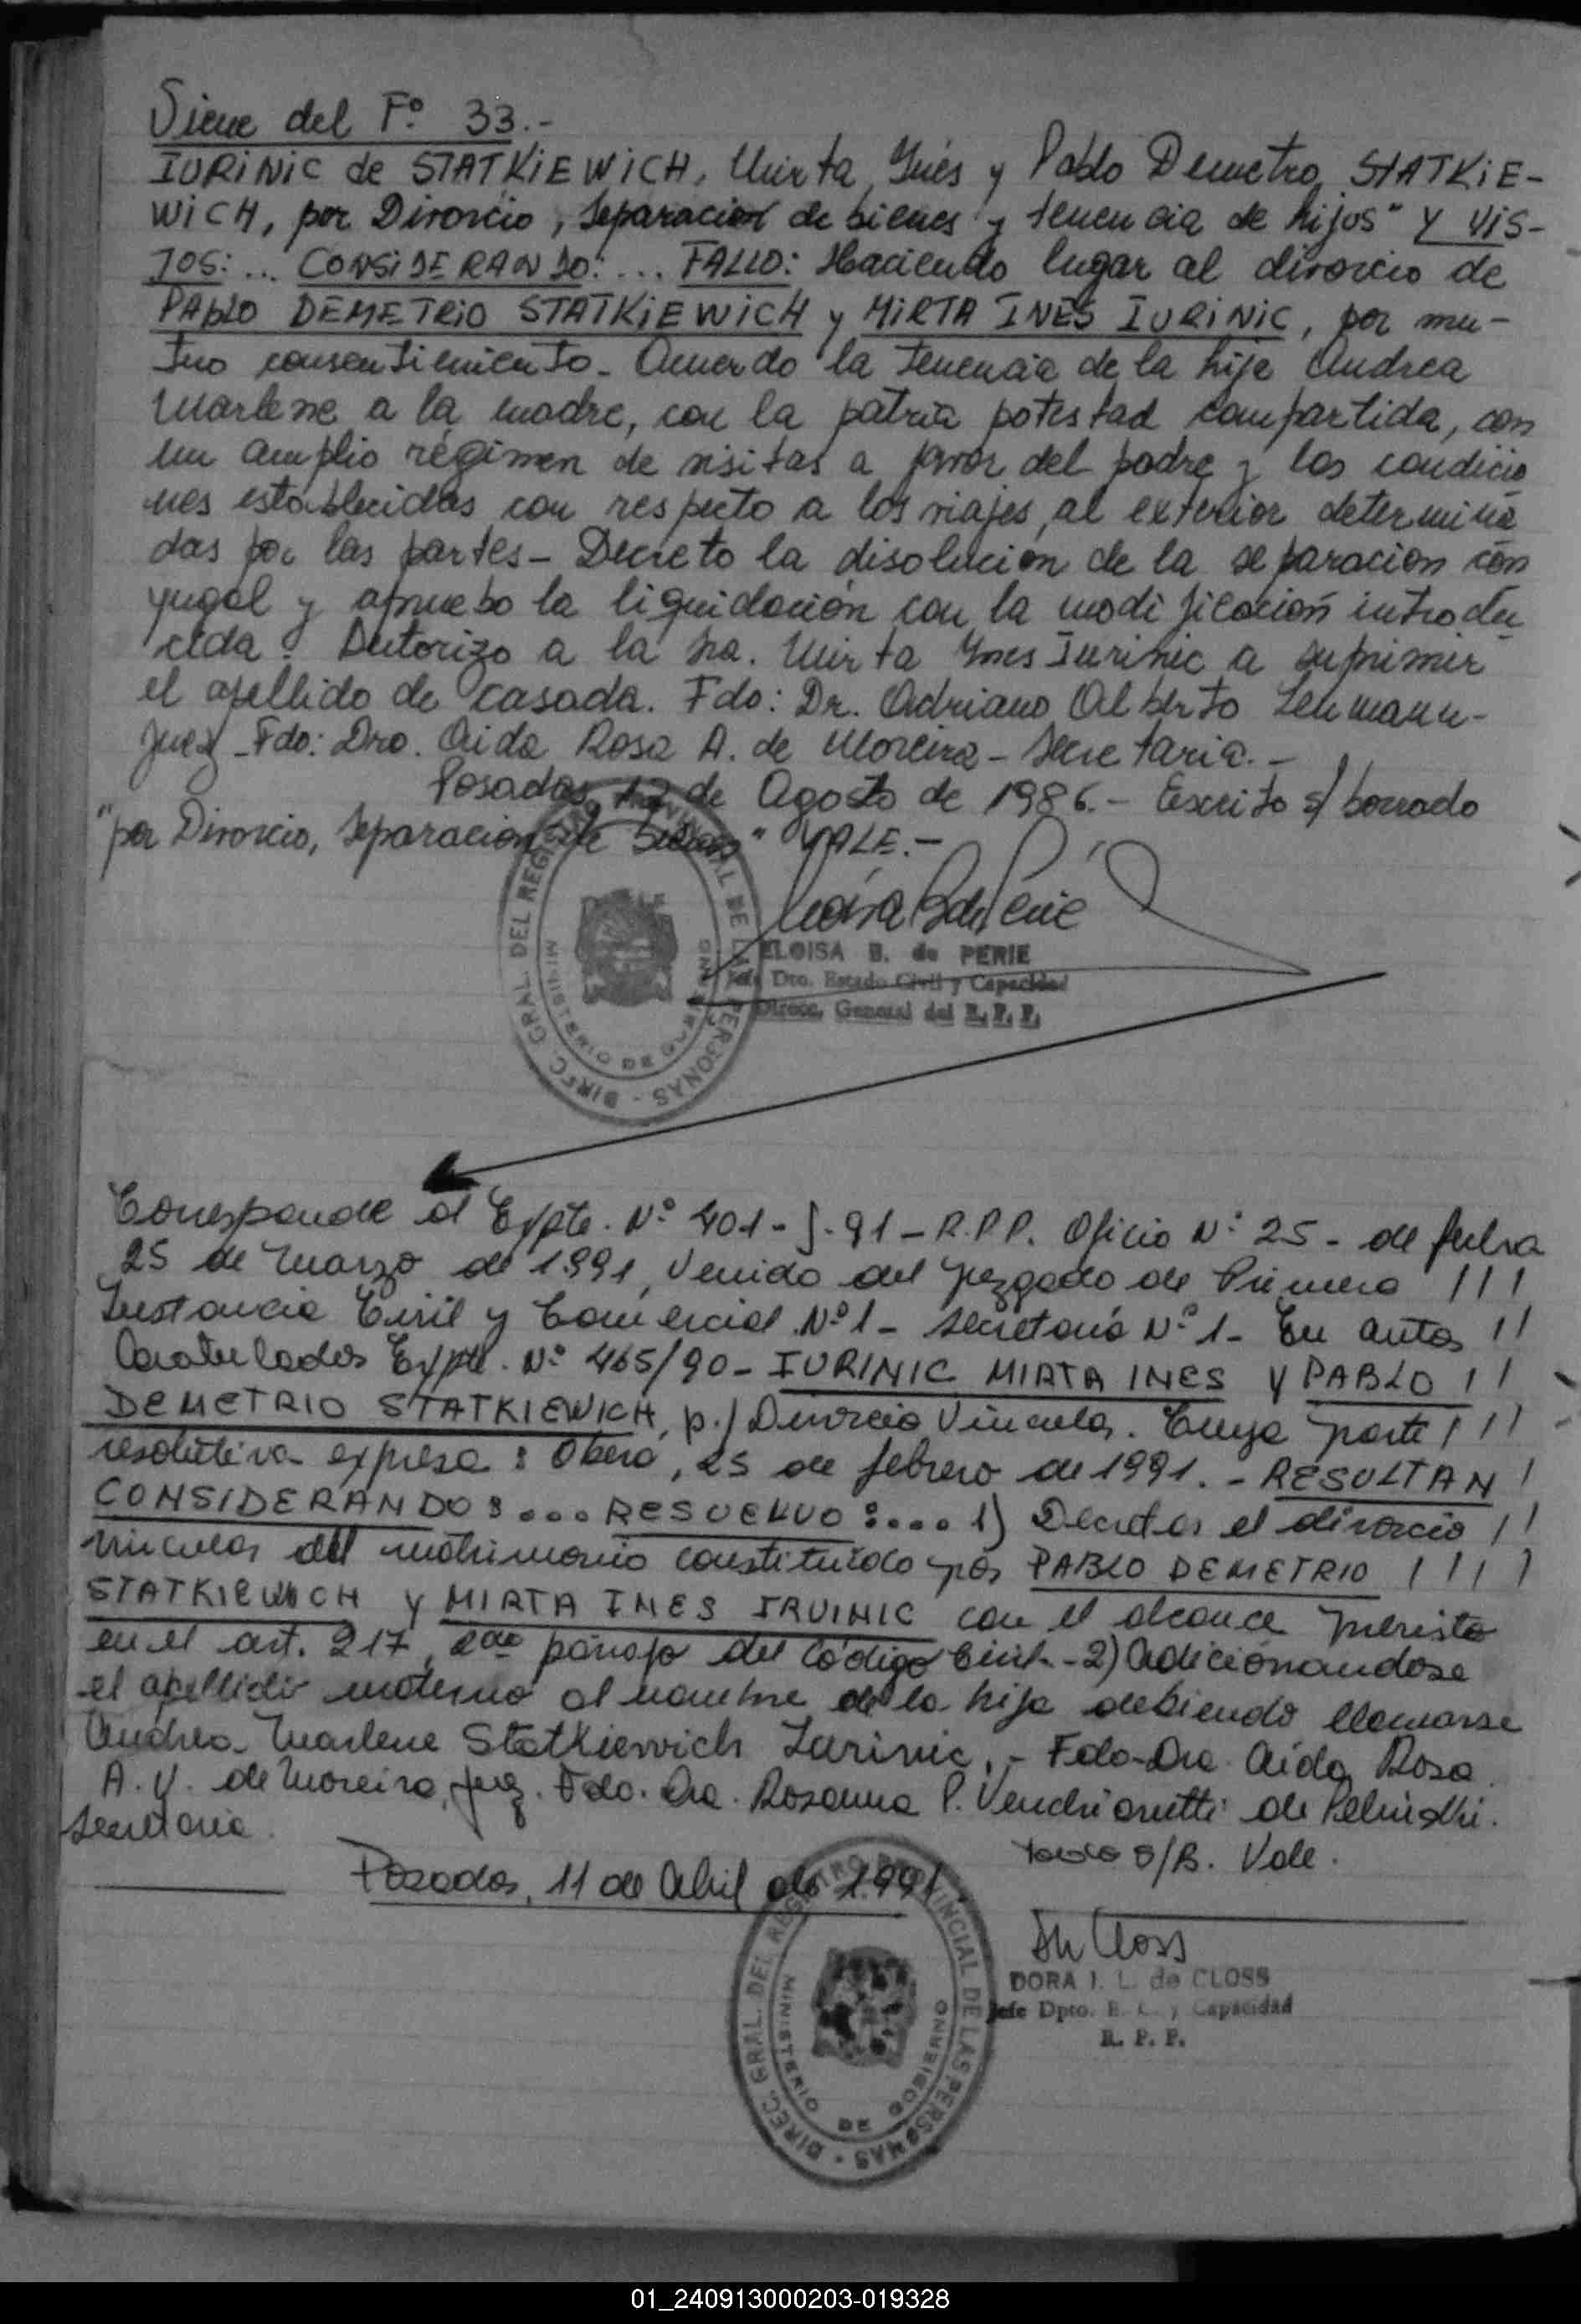 Viene del Fº 33.-
IURINIC de STATKIEWICH, Mirta Inés y Pablo Demetrio STATKIE-
WICH, por Divorcio, Separación de bienes y tenencia de hijos" Y VIS-
TOS: ... CONSIDERANDO: ... FALLO: Haciendo lugar al divorcio de
PABLO DEMETRIO STATKIEWICH y MIRTA INÉS IURINIC, por mu-
tuo consentimiento - Acuerdo la tenencia de la hija Andrea
Marlene a la madre, con la patria potestad compartida, con
un amplio régimen de visitas a favor del padre y las condicio
nes establecidas con respecto a los viajes al exterior determina
das por las partes - Decreto la disolución de la separación con
yugal y apruebo la liquidación con la modificación introdu
cida. Autorizo a la Sra. Mirta Ines Iurinic a suprimir
el apellido de casada. Fdo: Dr. Adriano Alberto Lenmann-
Juez - Fdo: Dra. Aida Rosa A. de Moreira - Secretaria.-
Posadas, 12 de Agosto de 1986.- Escrito s/ borrado
"por Divorcio, Separación de bienes" VALE.-
ELOISA B. de PERIE
Jefe Dto. Estado Civil y Capacidad
Direcc. General del R. P. P.
DIREC. GRAL. DEL REGISTRO PROVINCIAL DE LAS PERSONAS
MINISTERIO DE GOBIERNO
Corresponde al Expte. Nº 401 - J - 91 - R.P.P. Oficio Nº 25 - de fecha
25 de Marzo de 1991, Venido del Juzgado de Primera ///
Instancia Civil y Comercial Nº 1 - Secretaria Nº 1 - En autos //
Caratulados Expte. Nº 465/90 - IURINIC MIRTA INES Y PABLO //
DEMETRIO STATKIEWICH, p./ Divorcio Vincular. Cuya parte ///
resolutiva expresa: Oberá, 25 de febrero de 1991. - RESULTAN /
CONSIDERANDO: ... RESUELVO: .... 1) Decretar el divorcio //
vincular del matrimonio constituído por PABLO DEMETRIO ////
STATKIEWICH Y MIRTA INES IRUINIC con el alcance previsto
en el art. 217, 2do párrafo del Código Civil - 2) Adicionandose
el apellido materno al nombre de la hija debiendo llamarse
Andrea Marlene Statkiewich Iurinic. - Fdo- Dra. Aída Rosa
A. V. de Moreira, Juez. Fdo. Dra. Rosanna P. Vendrianetti de
Secretaria.
s/B. Vale.
Posadas, 11 de Abril de 1991.
DORA I. L. de CLOSS
Jefe Dpto. E. C. y Capacidad
R. P. P.
DIREC. GRAL. DEL REGISTRO PROVINCIAL DE LAS PERSONAS
MINISTERIO DE GOBIERNO
01_240913000203-019328